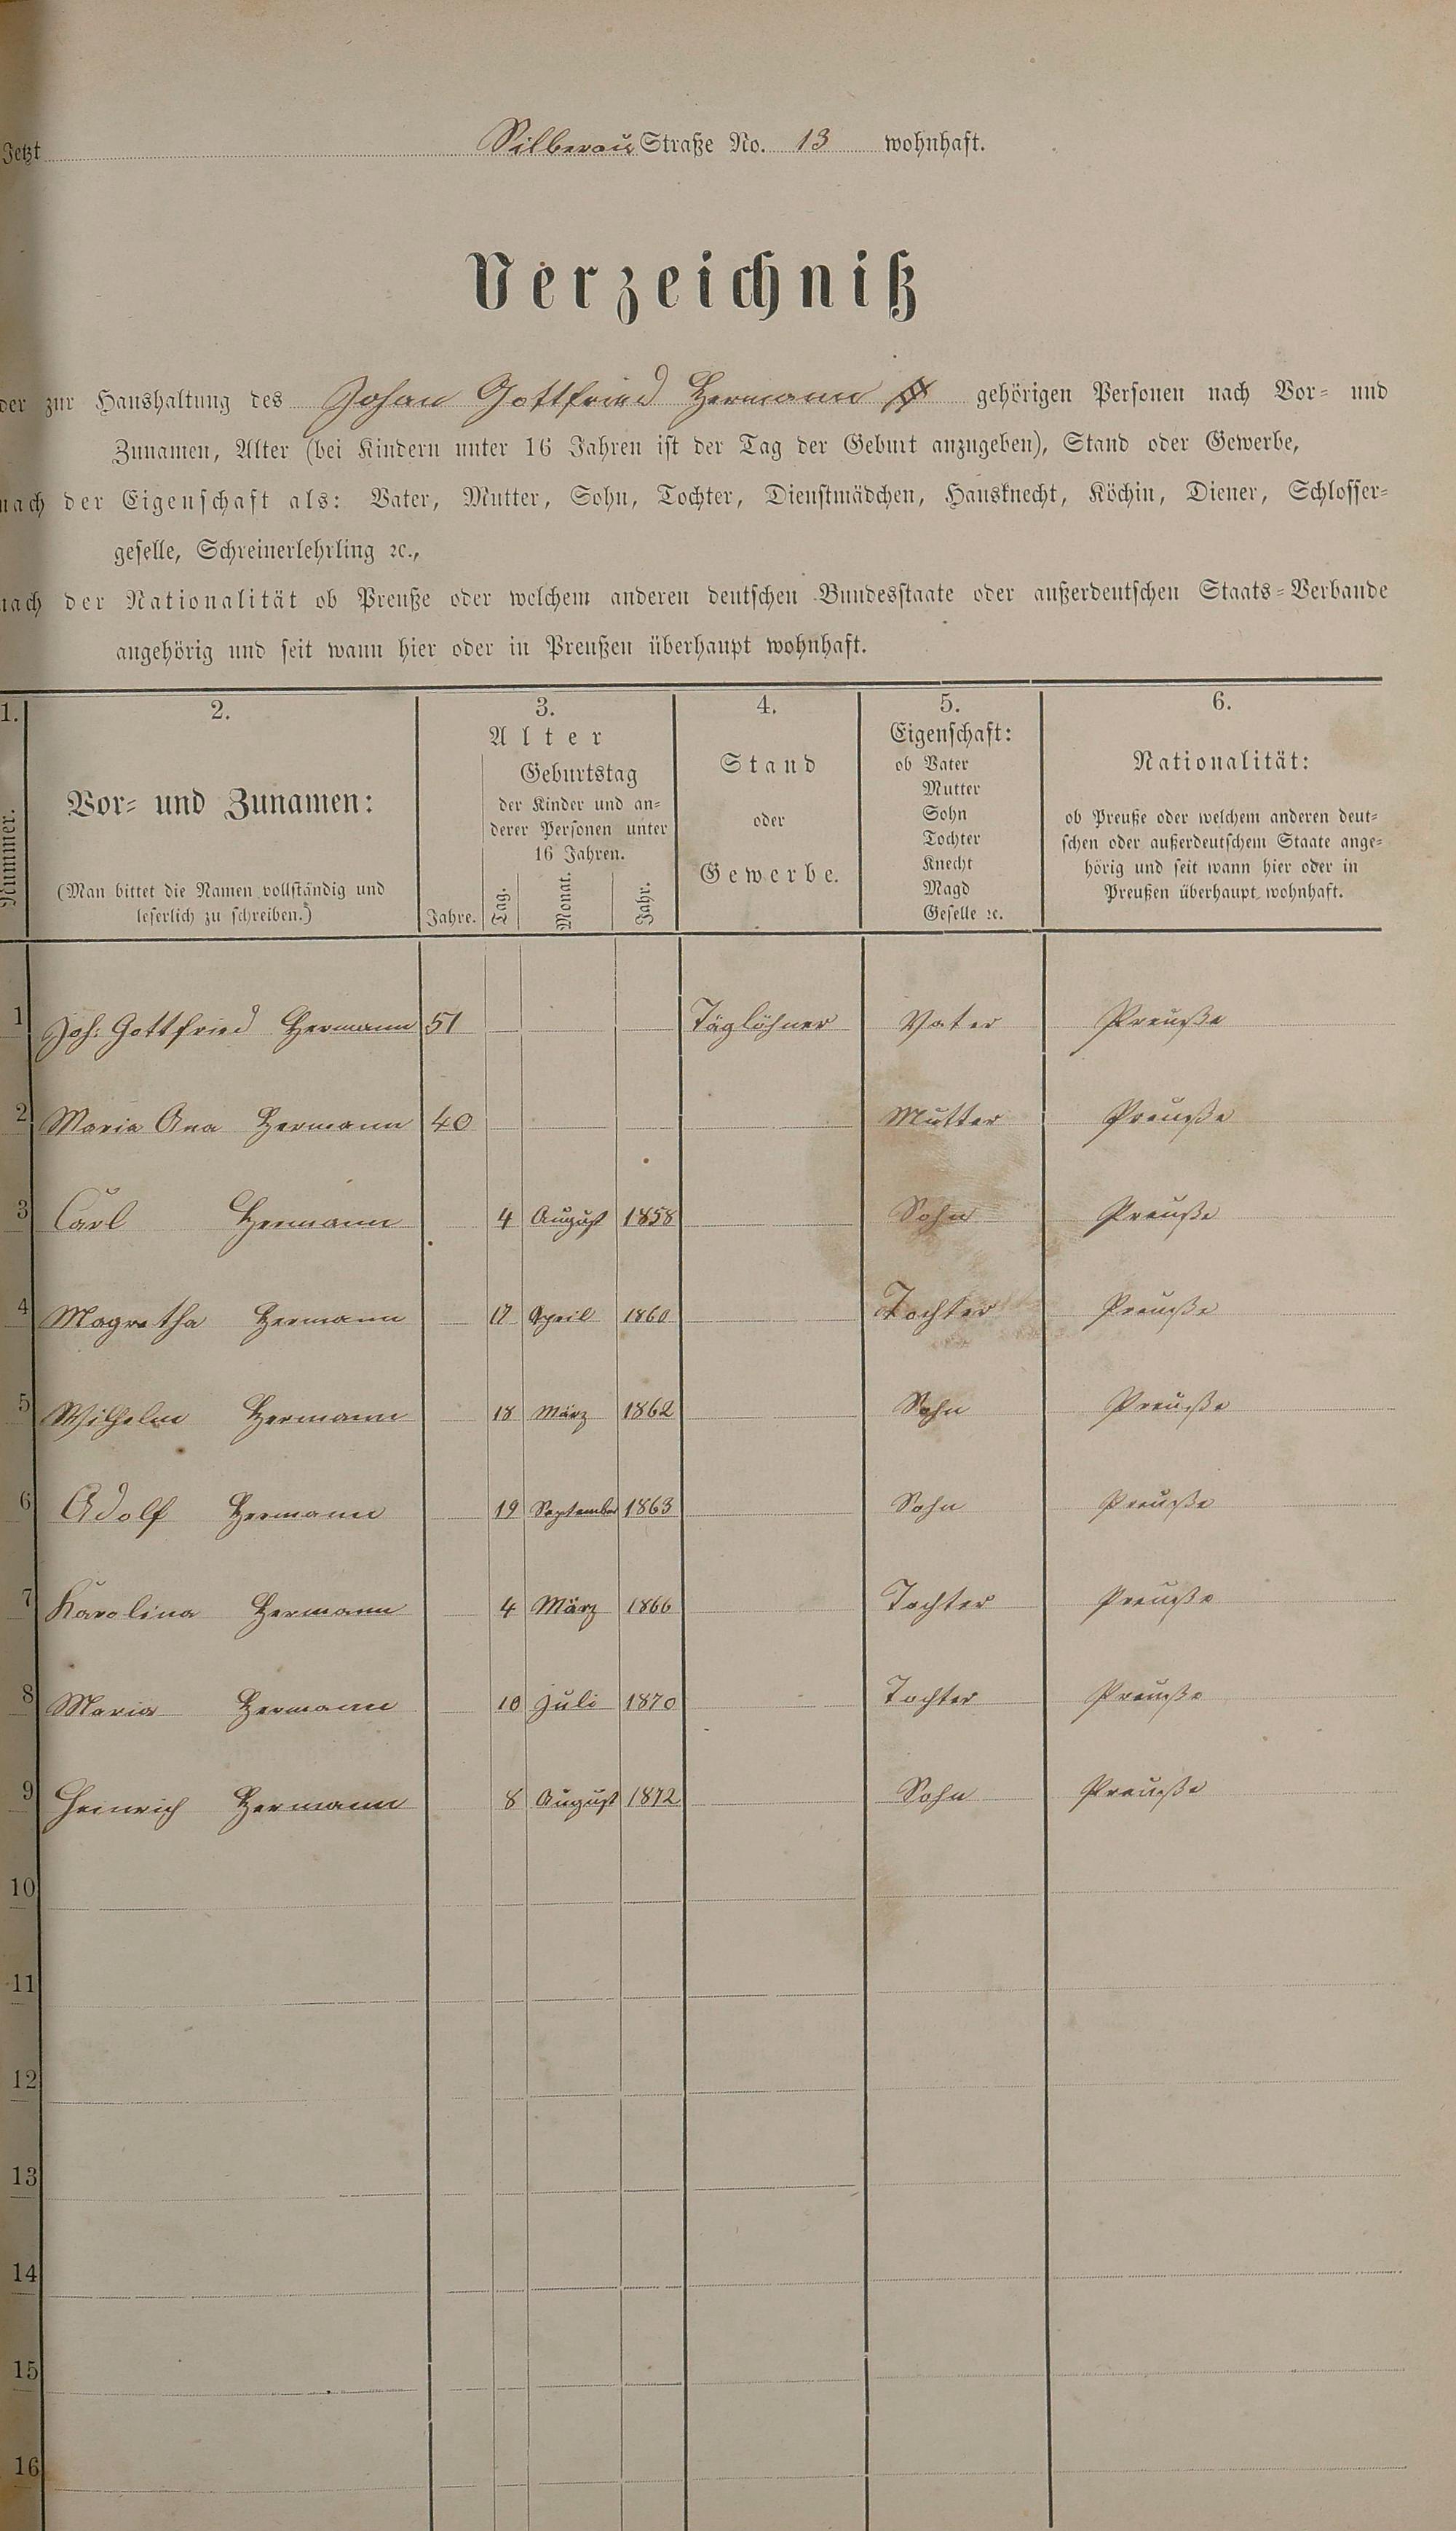 Jetzt Silberau Straße No. 13 wohnhaft.
Verzeichniß
der zur Haushaltung des Johan Gottfried Hermann gehörigen Personen nach Vor- und
Zunamen, Alter (bei Kindern unter 16 Jahren ist der Tag der Geburt anzugeben), Stand oder Gewerbe,
nach der Eigenschaft als: Vater, Mutter, Sohn, Tochter, Dienstmädchen, Hausknecht, Köchin, Diener, Schlosser-
geselle, Schreinerlehrling ꝛc.,
nach der Nationalität ob Preuße oder welchem anderen deutschen Bundesstaate oder außerdeutschen Staats-Verbande
angehörig und seit wann hier oder in Preußen überhaupt wohnhaft.
1. 2. 3. 4. 5. 6.
Nummer.
Vor- und Zunamen:
(Man bittet die Namen vollständig und
leserlich zu schreiben.)
Alter
Geburtstag
der Kinder und an-
derer Personen unter
16 Jahren.
Jahre. Tag. Monat. Jahr.
Stand
oder
Gewerbe.
Eigenschaft:
ob Vater
Mutter
Sohn
Tochter
Knecht
Magd
Geselle ꝛc.
Nationalität:
ob Preuße oder welchem anderen deut-
schen oder außerdeutschem Staate ange-
hörig und seit wann hier oder in
Preußen überhaupt wohnhaft.
1 Joh: Gottfried Hermann 51 Täglöhner Vater Preuße
2 Maria Ana Hermann 40 Mutter Preuße
3 Carl Hermann 4 August 1858 Sohn Preuße
4 Magretha Hermann 17 April 1860 Tochter Preuße
5 Wilhelm Hermann 18 März 1862 Sohn Preuße
6 Adolf Hermann 19 September 1863 Sohn Preuße
7 Karolina Hermann 4 März 1866 Tochter Preuße
8 Maria Hermann 10 Juli 1870 Tochter Preuße
9 Heinrich Hermann 8 August 1872 Sohn Preuße
10
11
12
13
14
15
16